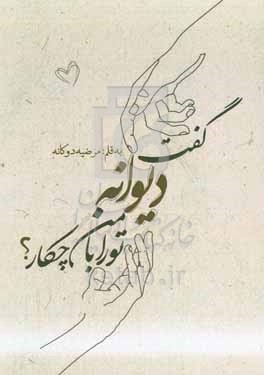 گفت
به قلم: مرضیه دوکانه
دیوانه
من
تو را با چکار؟